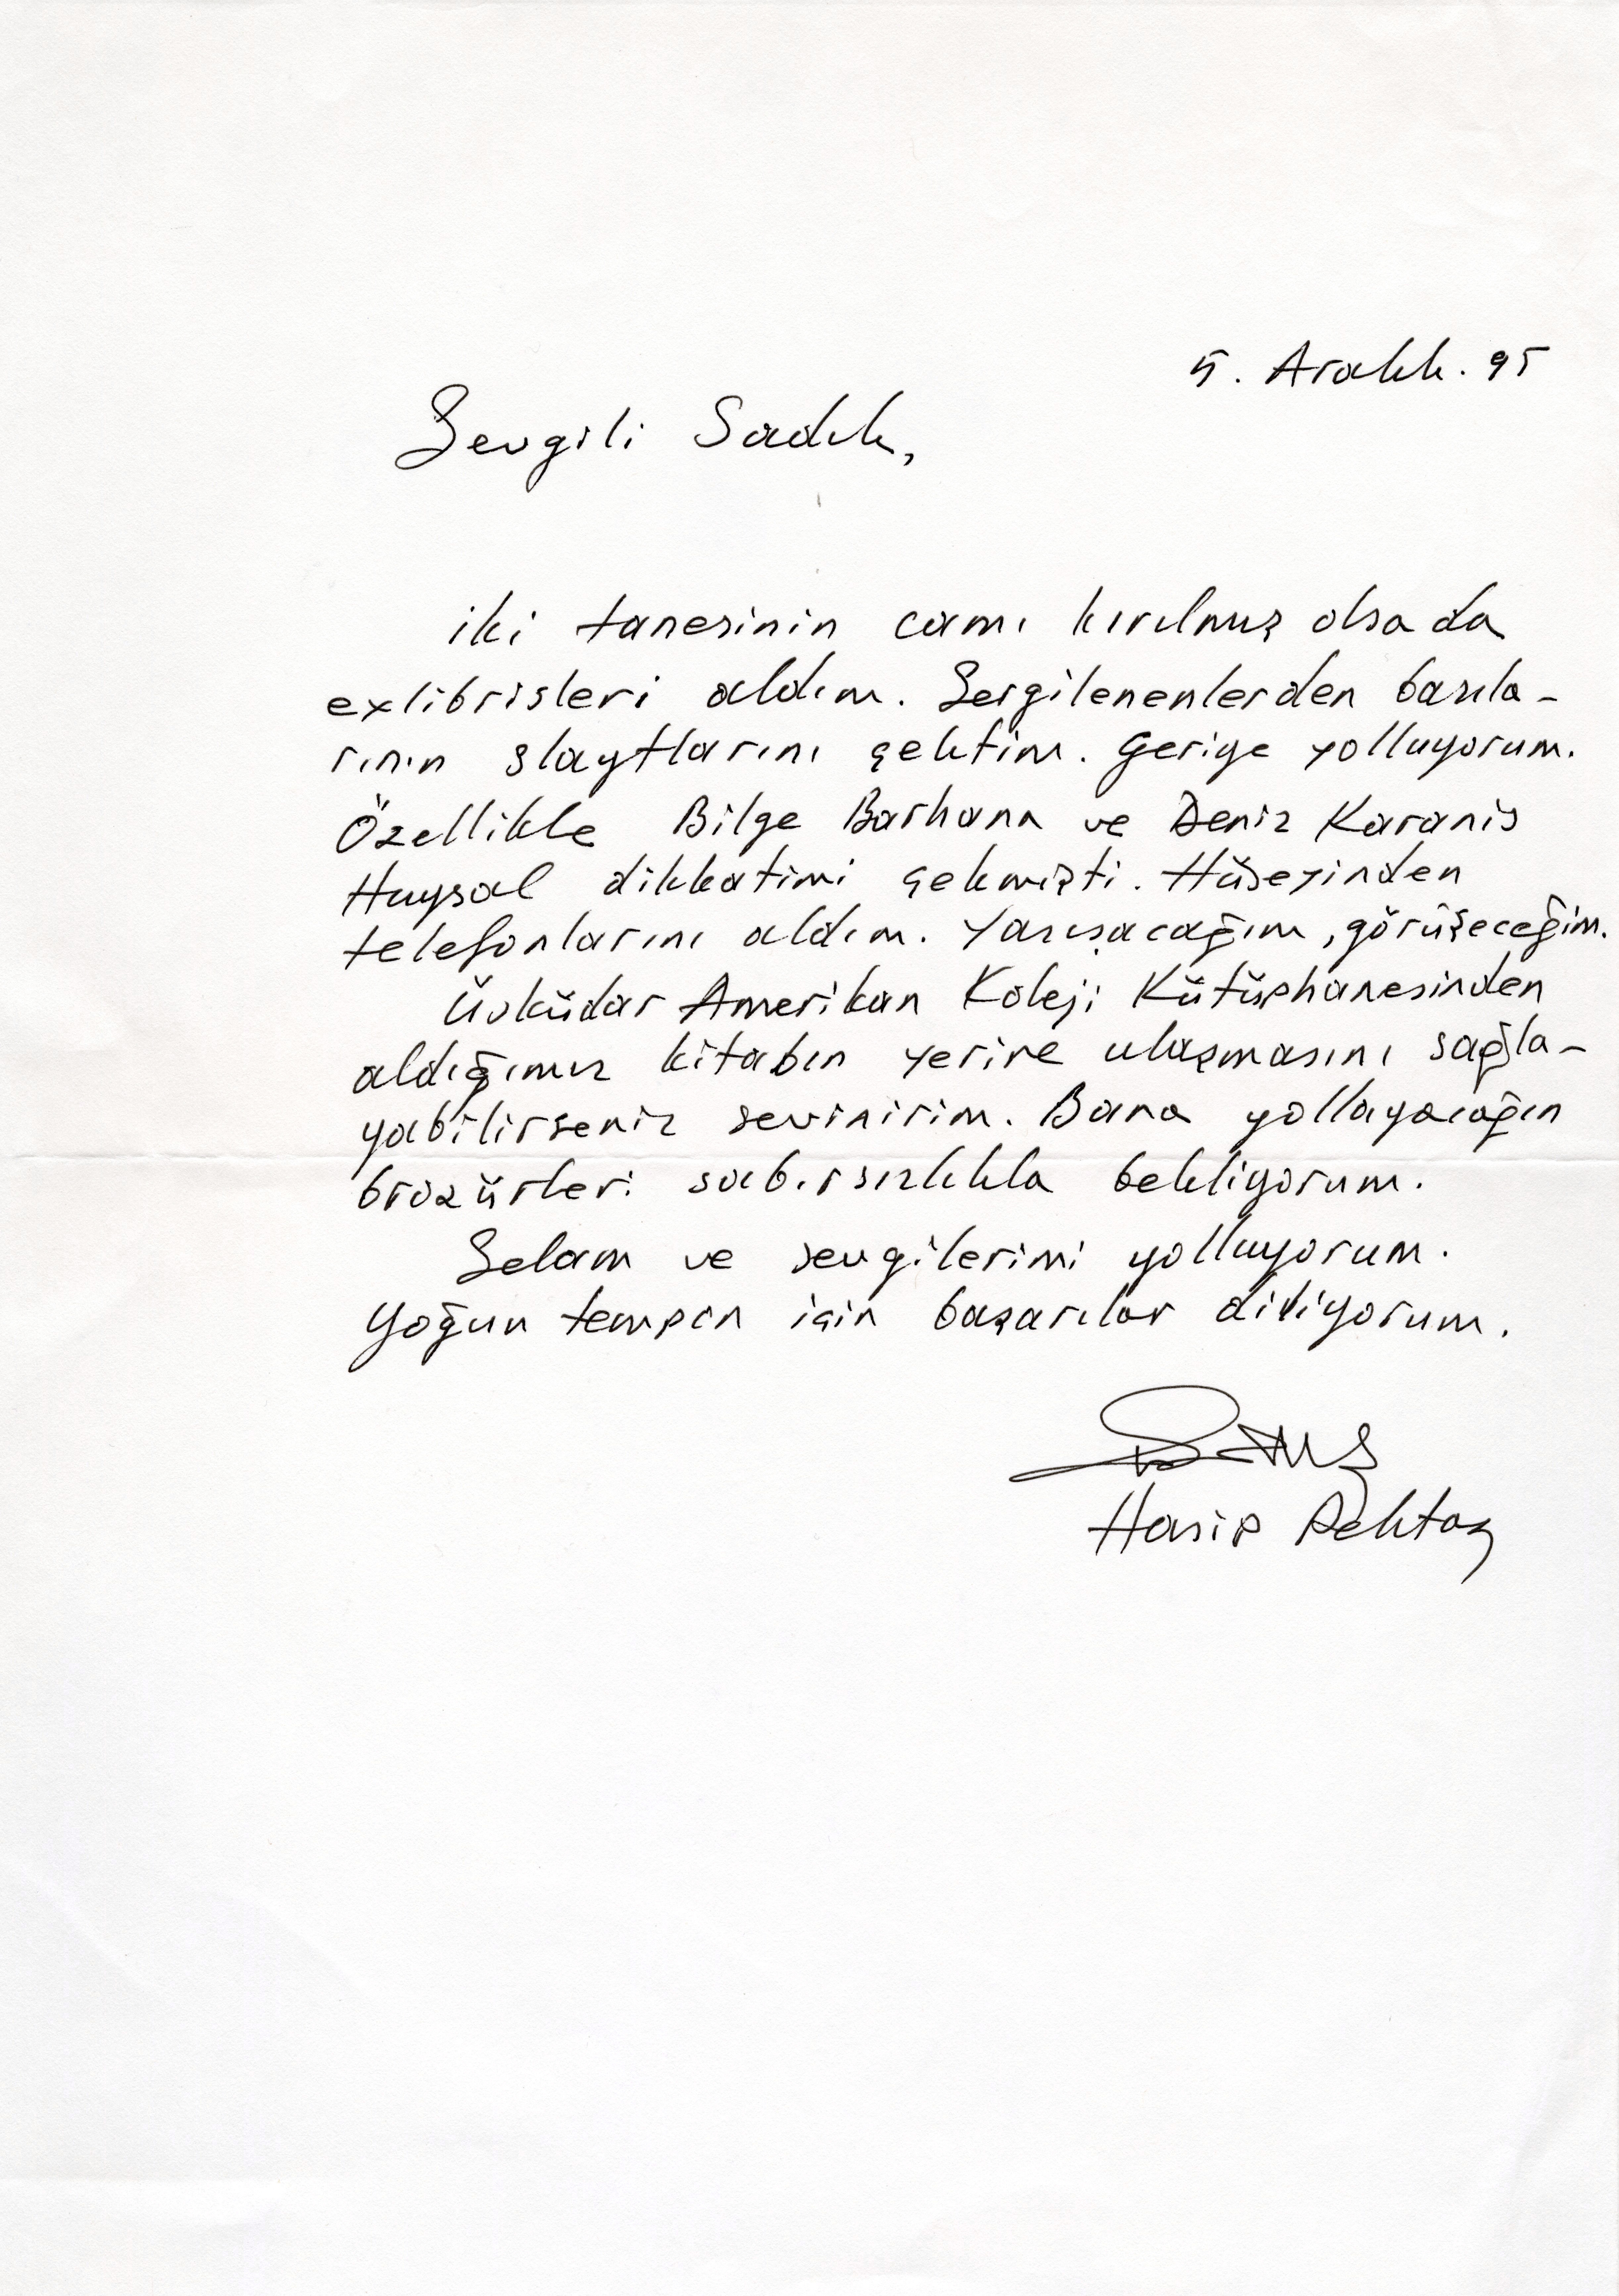 5. Aralık. 95
Sevgili Sadık,
iki tanesinin camı kırılmış olsada
exlibrisleri aldım. Sergilenenlerden bazıla-
rının slaytlarını çektim. Geriye yolluyorum.
Özellikle Bilge Barhana ve Deniz Karanis
Huysal dikkatimi çekmişti. Hüseyinden
telefonlarını aldım. Yazışacağım, görüşeceğim.
Üsküdar Amerikan Koleji Kütüphanesinden
aldığımız kitabın yerine ulaşmasını sağla-
yabilirseniz sevinirim. Bana yollayacağın
broşürleri sabırsızlıkla bekliyorum.
Selam ve sevgilerimi yolluyorum.
Yoğun tempon için başarılar diliyorum.
Hasip Pektaş